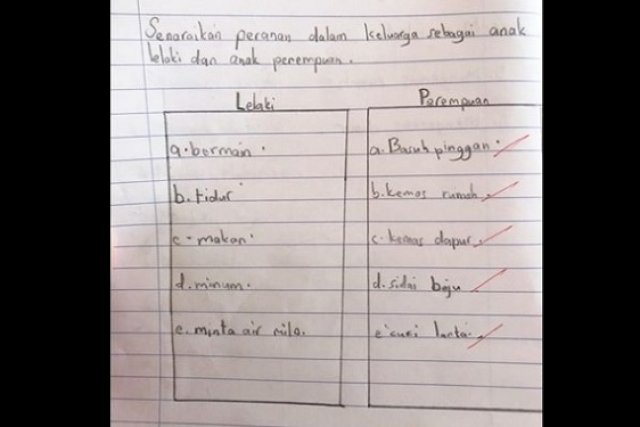 Senaraikan peranan dalam keluarga sebagai anak
lelaki dan anak perempuan.
Lelaki
a. bermain.
b. tidur
c. makan.
d. minum.
e. minta air milo.
Perempuan
a. Basuh pinggan.
b. kemas rumah.
c. kemas dapur.
d. sidai baju
e. cuci lantai.